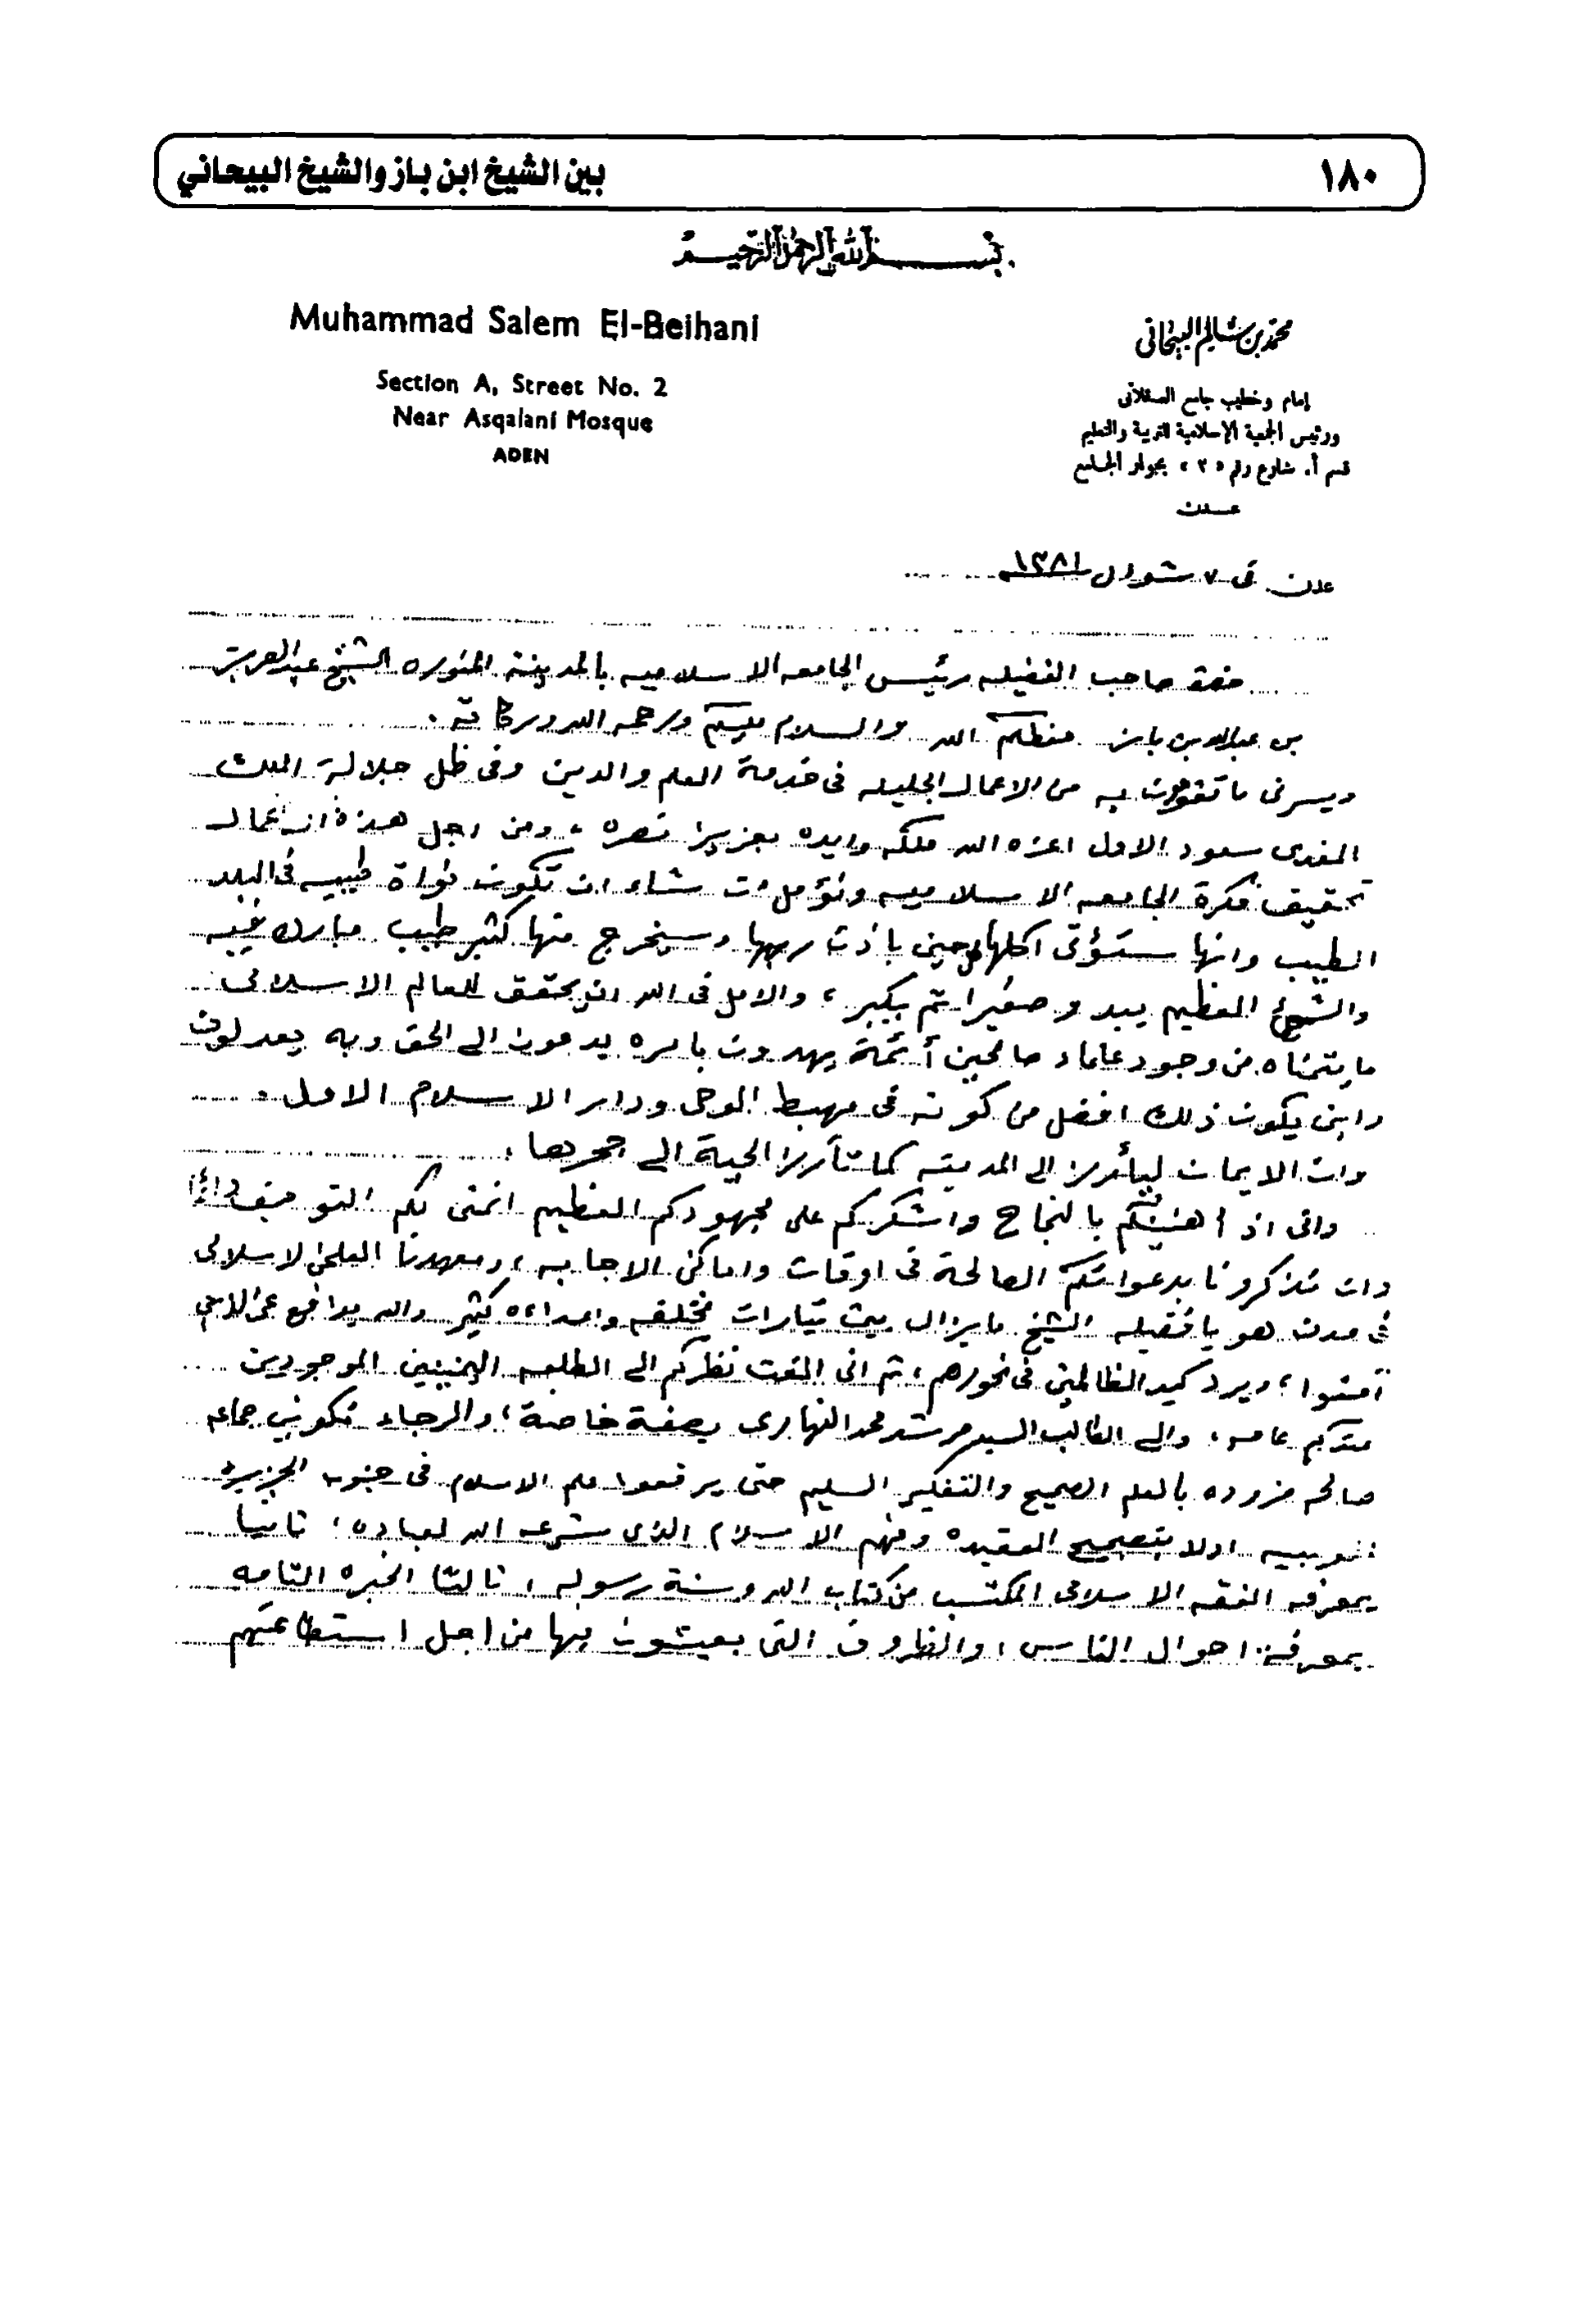 ١٨٠
بين الشيخ ابن باز والشيخ البيحاني
بسم الله الرحمن الرحيم
Muhammad Salem El-Beihani
Section A, Street No. 2
Near Asqalani Mosque
ADEN
محمد بن سالم البيحاني
إمام وخطيب جامع العسقلاني
ورئيس الجمعية الإسلامية للتربية والتعليم
قسم أ. شارع رقم «٢» بجوار الجامع
عدن
عدن فى ٧ شوال ١٣٨١
حضرة صاحب الفضيله رئيس الجامعه الاسلاميه بالمدينة المنوره الشيخ عبدالعزيز
بن عبدالله بن باز حفظكم الله والسلام عليكم ورحمه الله وبركاته.
ويسرنى ما تقومون به من الاعمال الجليله فى خدمة العلم والدين وفى ظل جلالة الملك
المفدى سعود الاول اعزه الله ملكه وايده بعزيز نصره، ومن اجل هذه الاعمال
تحقيق فكرة الجامعه الاسلاميه ونؤمل ان تكون نواة طيبه فى البلد
الطيب وانها ستؤتى اكلها كل حين باذن ربها وسيخرج منها كثير طيب مبارك فيه
والشيئ العظيم يبدو صغيرا ثم يكبر، والامل فى الله ان يحقق للعالم الاسلامى
ما يتمناه من وجود علماء صالحين أئمة يهدون بامره يدعون الى الحق وبه يعدلون
واين يكون ذلك افضل من كونه فى مهبط الوحى ودار الاسلام الاول.
وان الايمان ليأرز الى المدينه كما تأرز الحية الى جحرها.
وانى اذ أهنيئكم بالنجاح واشكركم على مجهودكم العظيم اتمنى لكم التوفيق دائما
وان تذكرونا بدعواتكم الصالحة فى اوقات واماكن الاجابه، ومعهدنا العلمى الاسلامى
فى عدن هو يا فضيله الشيخ ما يزال بين تيارات مختلفه واعداءه كثير والله يدافع عن الذين
آمنوا، ويرد كيد الظالمين فى نحورهم، ثم انى الفت نظركم الى الطلبه اليمنيين الموجودين
عندكم عامه، والى الطالب السيد مرشد محمد النهارى بصفة خاصة، والرجاء تكوين جماعه
صالحه مزوده بالعلم الصحيح والتفكير السليم حتى يرفعوا علم الاسلام فى جنوب الجزيره
العربيه اولا بتصحيح العقيده وفهم الاسلام الذى شرعه الله لعباده، ثانيا
بمعرفه الفقه الاسلامى المكتسب من كتاب الله وسنة رسوله، ثالثا الخبره التامه
بمعرفة احوال الناس، والظروف التى يعيشون فيها من اجل استطاعتهم